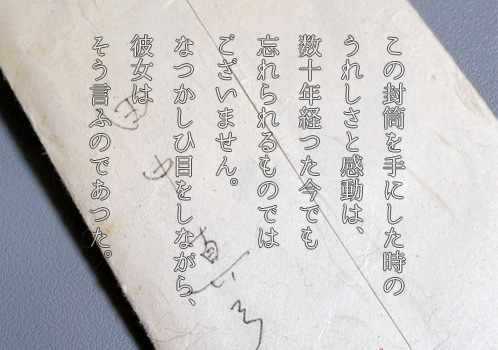 この封筒を手にした時の
うれしさと感動は、
数十年経つた今でも
忘れられるものでは
ございません。
なつかしひ目をしながら、
彼女は
そう言ふのであつた。